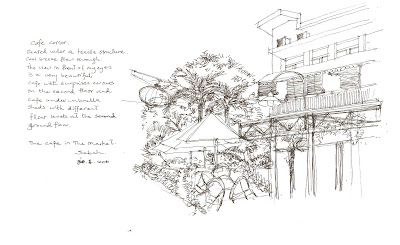 Cafe corner.
Seated under a textile structure
Cool breeze flow through.
The view in front of my eyes
is a very beautiful
cafe with
on the second floor and
cafe under umbrella
sheds with different
floor levels at the second
ground floor.
The cafe in The Market.